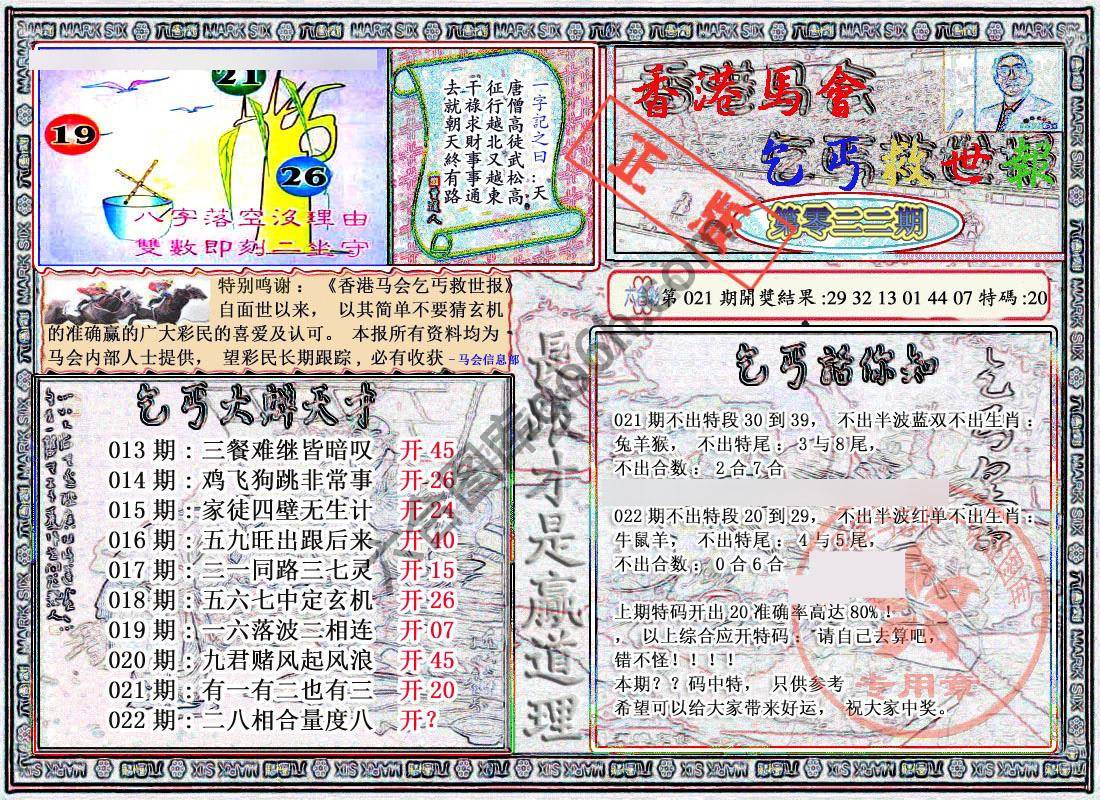 香港馬會
乞丐救世報
第零二二期
正版
21
19
26
八字落空沒理由
雙數即刻二坐守
一字記之曰：天
唐僧高徒武松高
征行越北又越東
干祿求財事事通
去就朝天終有路
特别鸣谢：《香港马会乞丐救世报》
自面世以来， 以其简单不要猜玄机
的准确赢的广大彩民的喜爱及认可。 本报所有资料均为
马会内部人士提供， 望彩民长期跟踪，必有收获－马会信息部
第 021 期開獎結果:29 32 13 01 44 07 特碼:20
乞丐大解天才
013 期：三餐难继皆暗叹 开 45
014 期：鸡飞狗跳非常事 开 26
015 期：家徒四壁无生计 开 24
016 期：五九旺出跟后来 开 40
017 期：二一同路三七灵 开 15
018 期：五六七中定玄机 开 26
019 期：一六落波二相连 开 07
020 期：九君赌风起风浪 开 45
021 期：有一有二也有三 开 20
022 期：二八相合量度八 开？
才是赢道理
乞丐話你知
021 期不出特段 30 到 39， 不出半波蓝双不出生肖：
兔羊猴， 不出特尾：3 与 8 尾，
不出合数：2 合 7 合
022 期不出特段 20 到 29， 不出半波红单不出生肖：
牛鼠羊， 不出特尾：4 与 5 尾，
不出合数：0 合 6 合
上期特码开出 20 准确率高达 80%！
， 以上综合应开特码： 请自己去算吧，
错不怪！！！！
本期？？码中特， 只供参考
希望可以给大家带来好运， 祝大家中奖。
专用章